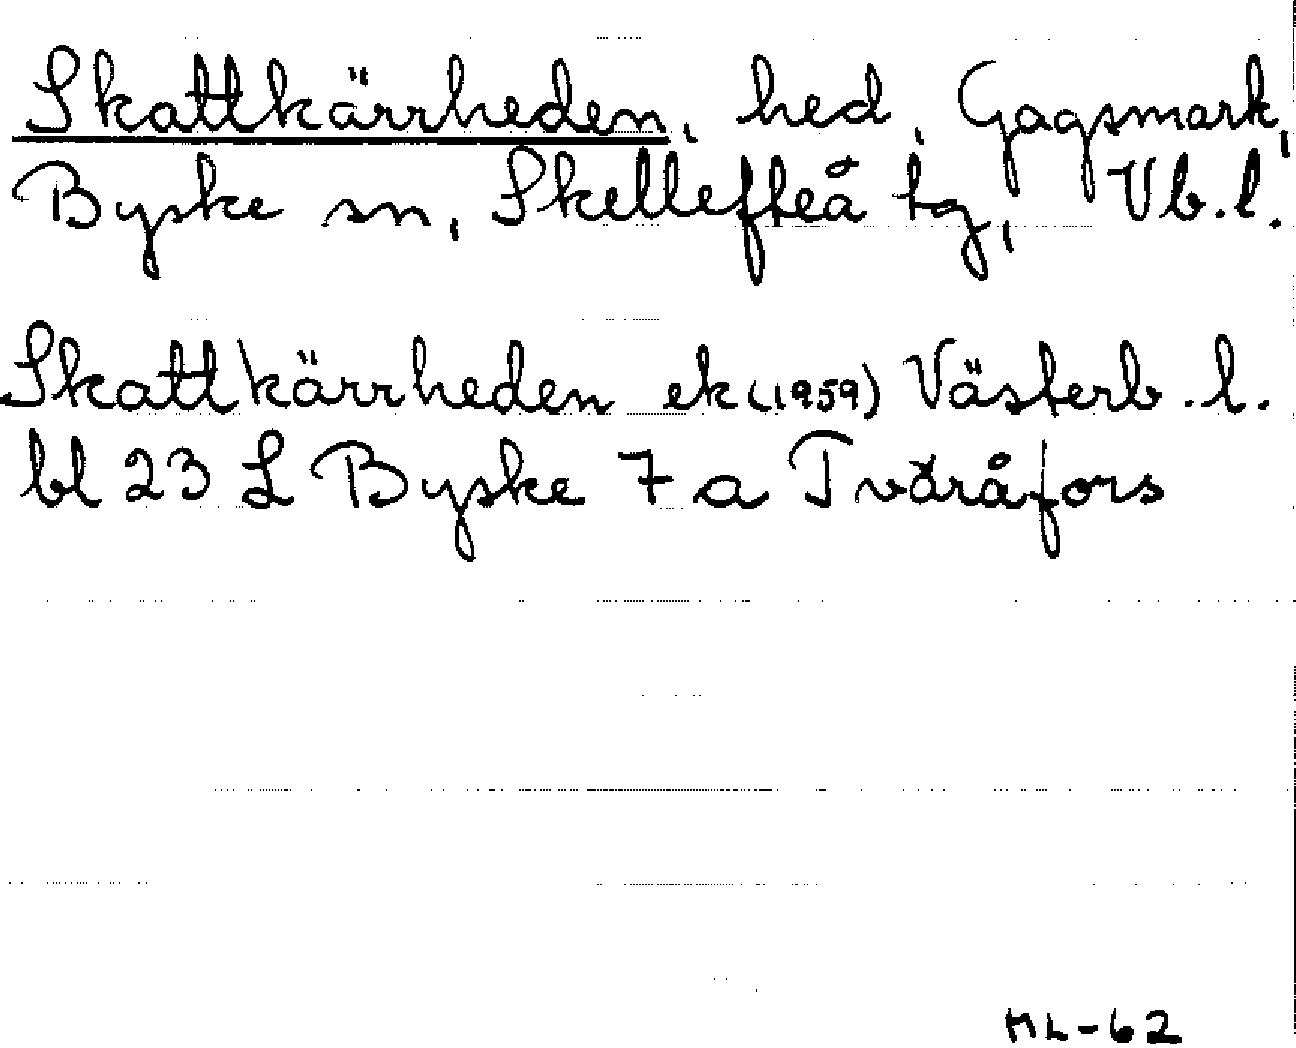 Skattkärrheden, hed, Gagsmark,
Byske sn, Skellefteå tg, Vb.l.
Skattkärrheden ek (1959) Västerb.l.
bl 23 L Byske 7 a Tvåråfors
ML-62